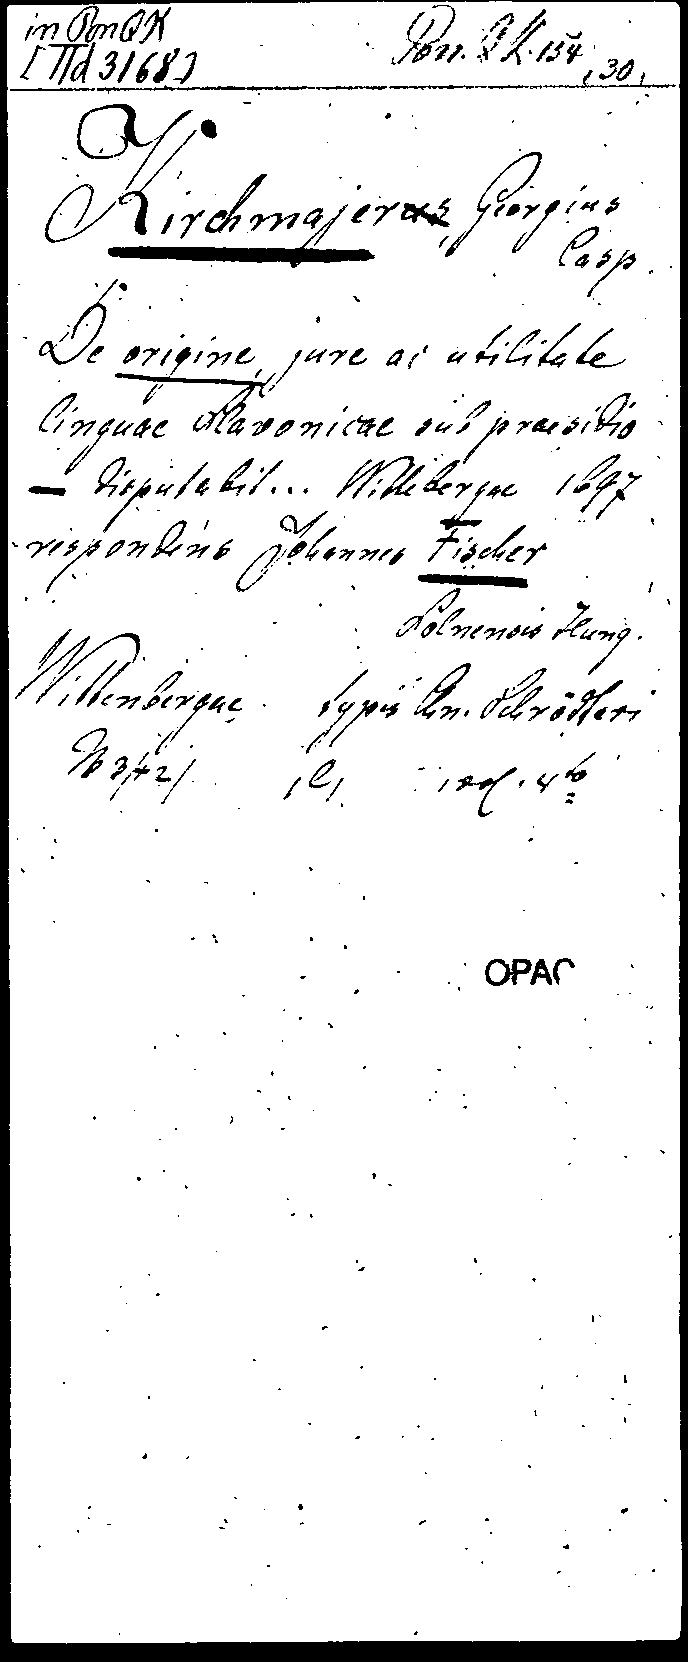 in Pon QK
[IId 3168]
Pon. QK. 154
,30,
Kirchmajerus, Georgius
Casp.
De origine, jure ac utilitate
linguae Slavonicae sub praesidio
— disputabit... Wittebergae 1697
respondens Johannes Fischer
Solnensis Hung.
Wittenbergae typis Chn. Schrödteri
4to
OPAC